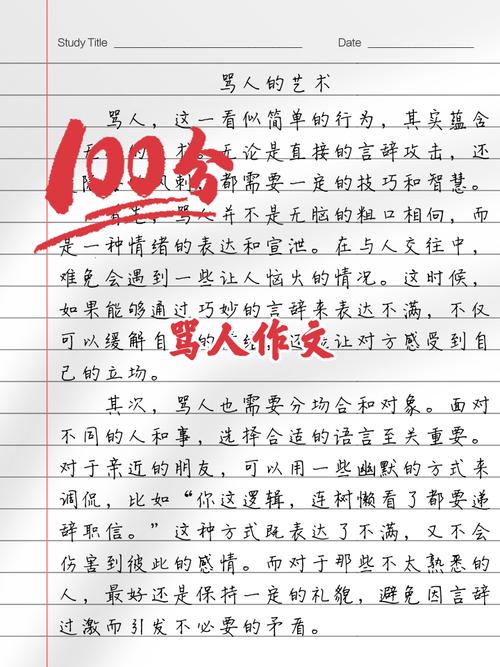 Study Title Date
骂人的艺术
骂人，这一看似简单的行为，其实蕴含
100分
术。无论是直接的言辞攻击，还
风刺，都需要一定的技巧和智慧。
骂人并不是无脑的粗口相向，而
是一种情绪的表达和宣泄。在与人交往中，
难免会遇到一些让人恼火的情况。这时候，
如果能够通过巧妙的言辞来表达不满，不仅
骂人作文
可以缓解自 让对方感受到
己的立场。
其次，骂人也需要分场合和对象。面对
不同的人和事，选择合适的语言至关重要。
对于亲近的朋友，可以用一些幽默的方式来
调侃，比如“你这逻辑，连树懒看了都要递
辞职信。”这种方式既表达了不满，又不会
伤害到彼此的感情。而对于那些不太熟悉的
人，最好还是保持一定的礼貌，避免因言辞
过激而引发不必要的矛盾。